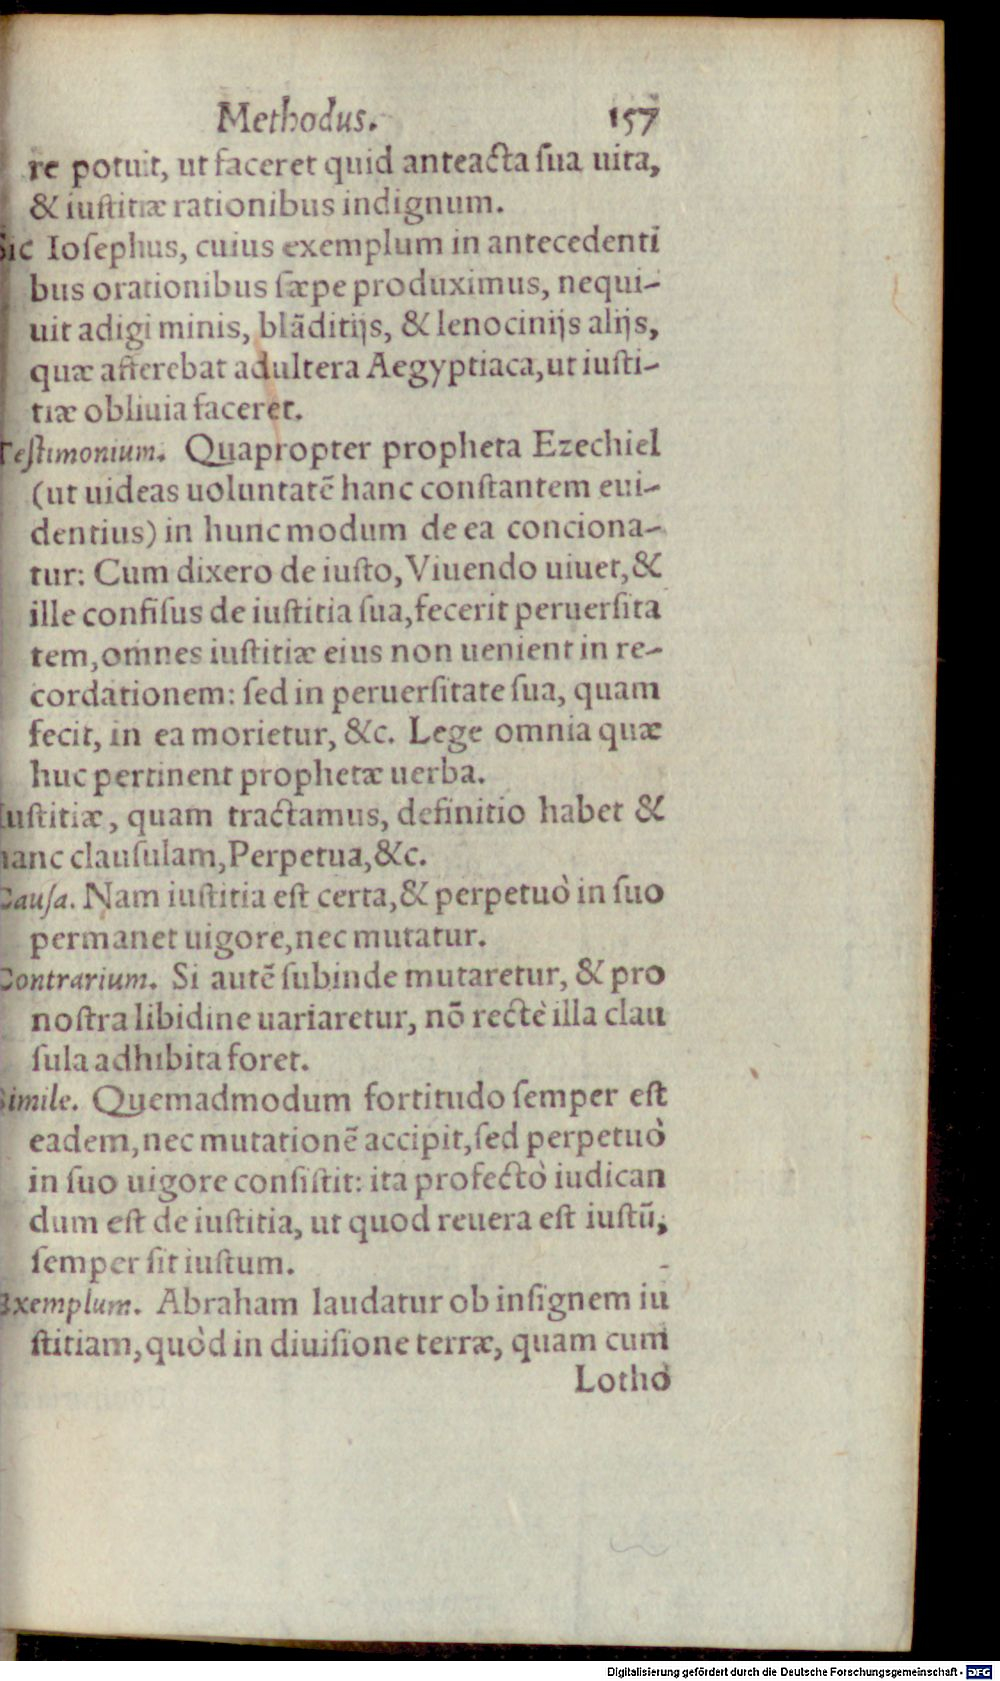 Methodus. 157
re potuit, ut faceret quid anteacta ſua uita,
& iuſtitiæ rationibus indignum.
Sic Ioſephus, cuius exemplum in antecedenti
bus orationibus ſæpe produximus, nequi-
uit adigi minis, blãditijs, & lenocinijs alijs,
quæ afferebat adultera Aegyptiaca, ut iuſti-
tiæ obliuia faceret.
Teſtimonium. Quapropter propheta Ezechiel
(ut uideas uoluntatẽ hanc conſtantem eui-
dentius) in hunc modum de ea conciona-
tur: Cum dixero de iuſto, Viuendo uiuet, &
ille confiſus de iuſtitia ſua, fecerit peruerſita
tem, omnes iuſtitiæ eius non uenient in re-
cordationem: ſed in peruerſitate ſua, quam
fecit, in ea morietur, &c. Lege omnia quæ
huc pertinent prophetæ uerba.
Iuſtitiæ, quam tractamus, definitio habet &
hanc clauſulam, Perpetua, &c.
Cauſa. Nam iuſtitia eſt certa, & perpetuò in ſuo
permanet uigore, nec mutatur.
Contrarium. Si autẽ ſubinde mutaretur, & pro
noſtra libidine uariaretur, nõ rectè illa clau
ſula adhibita foret.
Simile. Quemadmodum fortitudo ſemper eſt
eadem, nec mutationẽ accipit, ſed perpetuò
in ſuo uigore conſiſtit: ita profectò iudican
dum eſt de iuſtitia, ut quod reuera eſt iuſtũ,
ſemper ſit iuſtum.
Exemplum. Abraham laudatur ob inſignem iu
ſtitiam, quòd in diuiſione terræ, quam cum
Lotho
Digitalisierung gefördert durch die Deutsche Forschungsgemeinschaft - DFG